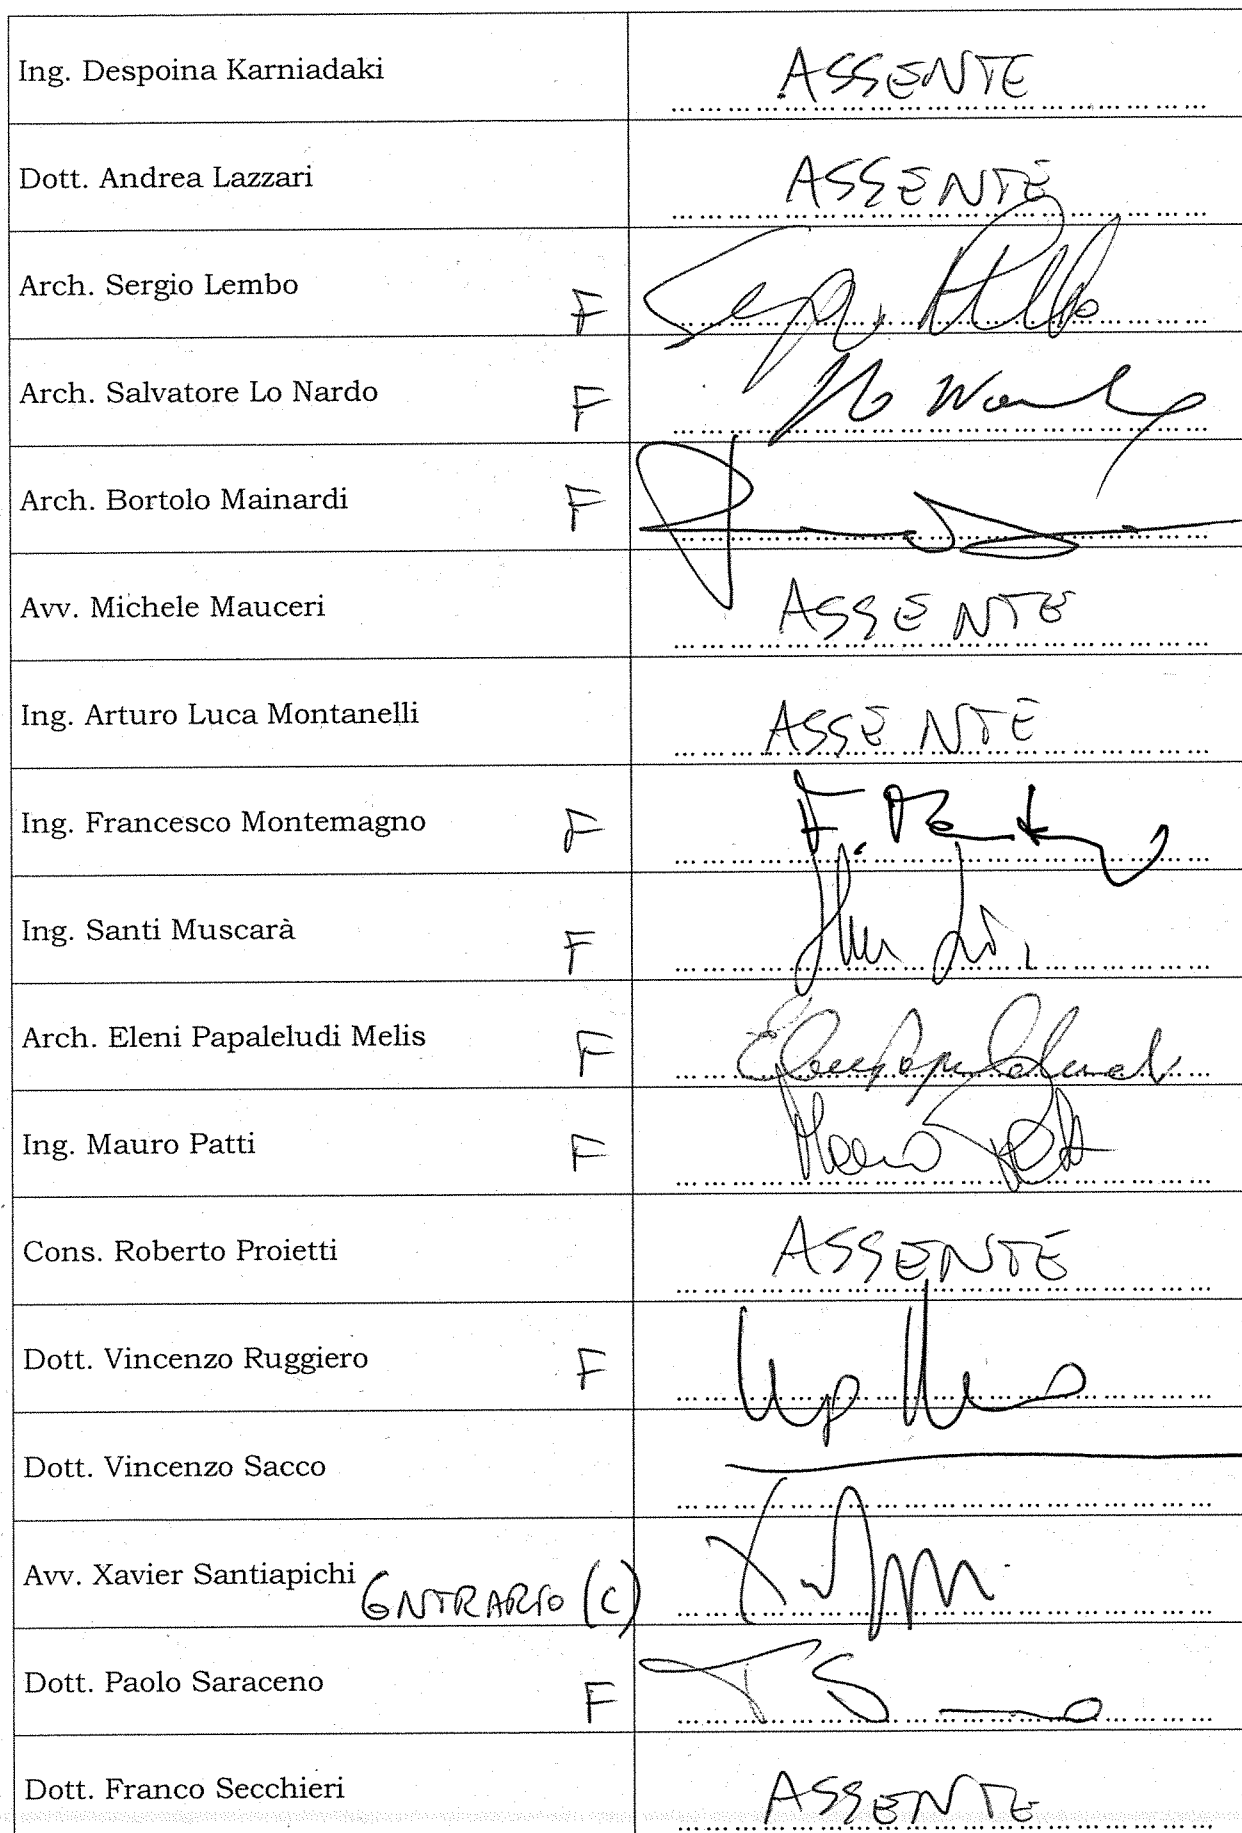 Ing. Despoina Karniadaki ASSENTE
Dott. Andrea Lazzari ASSENTE
Arch. Sergio Lembo F
Arch. Salvatore Lo Nardo F
Arch. Bortolo Mainardi F
Avv. Michele Mauceri ASSENTE
Ing. Arturo Luca Montanelli ASSENTE
Ing. Francesco Montemagno F
Ing. Santi Muscarà F
Arch. Eleni Papaleludi Melis F
Ing. Mauro Patti F
Cons. Roberto Proietti ASSENTE
Dott. Vincenzo Ruggiero F
Dott. Vincenzo Sacco
Avv. Xavier Santiapichi CONTRARIO (C)
Dott. Paolo Saraceno F
Dott. Franco Secchieri ASSENTE